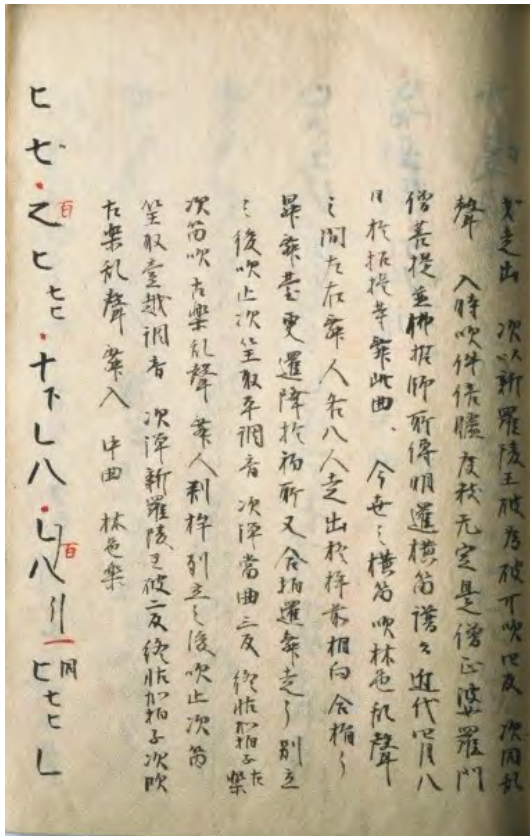 走出 次以新羅陵王破為破可吹四反 次同乱
聲 入時吹件倍臚度数无定是僧正婆羅門
僧菩提並佛哲師所傳明暹横笛譜々近代四月八
日於招提寺舞此曲、今世之横笛吹林邑乱聲
之間左右舞人各八人走出於桙前相向合指了
昇舞臺更還降於初所又合指還舞走了別立
之後吹止次笙取平調音 次弾當曲三反終帖加拍子 左樂
次笛吹古樂乱聲 舞人判桙列立之後吹止次笛
笙取壹越調音 次弾新羅陵王破二反終帖加拍子次吹
古樂乱聲舞入 中曲 林邑樂
ヒ七・之ヒ七ヒ・十下乚八・乚八引一ヒ七ヒ乚
百
百
同